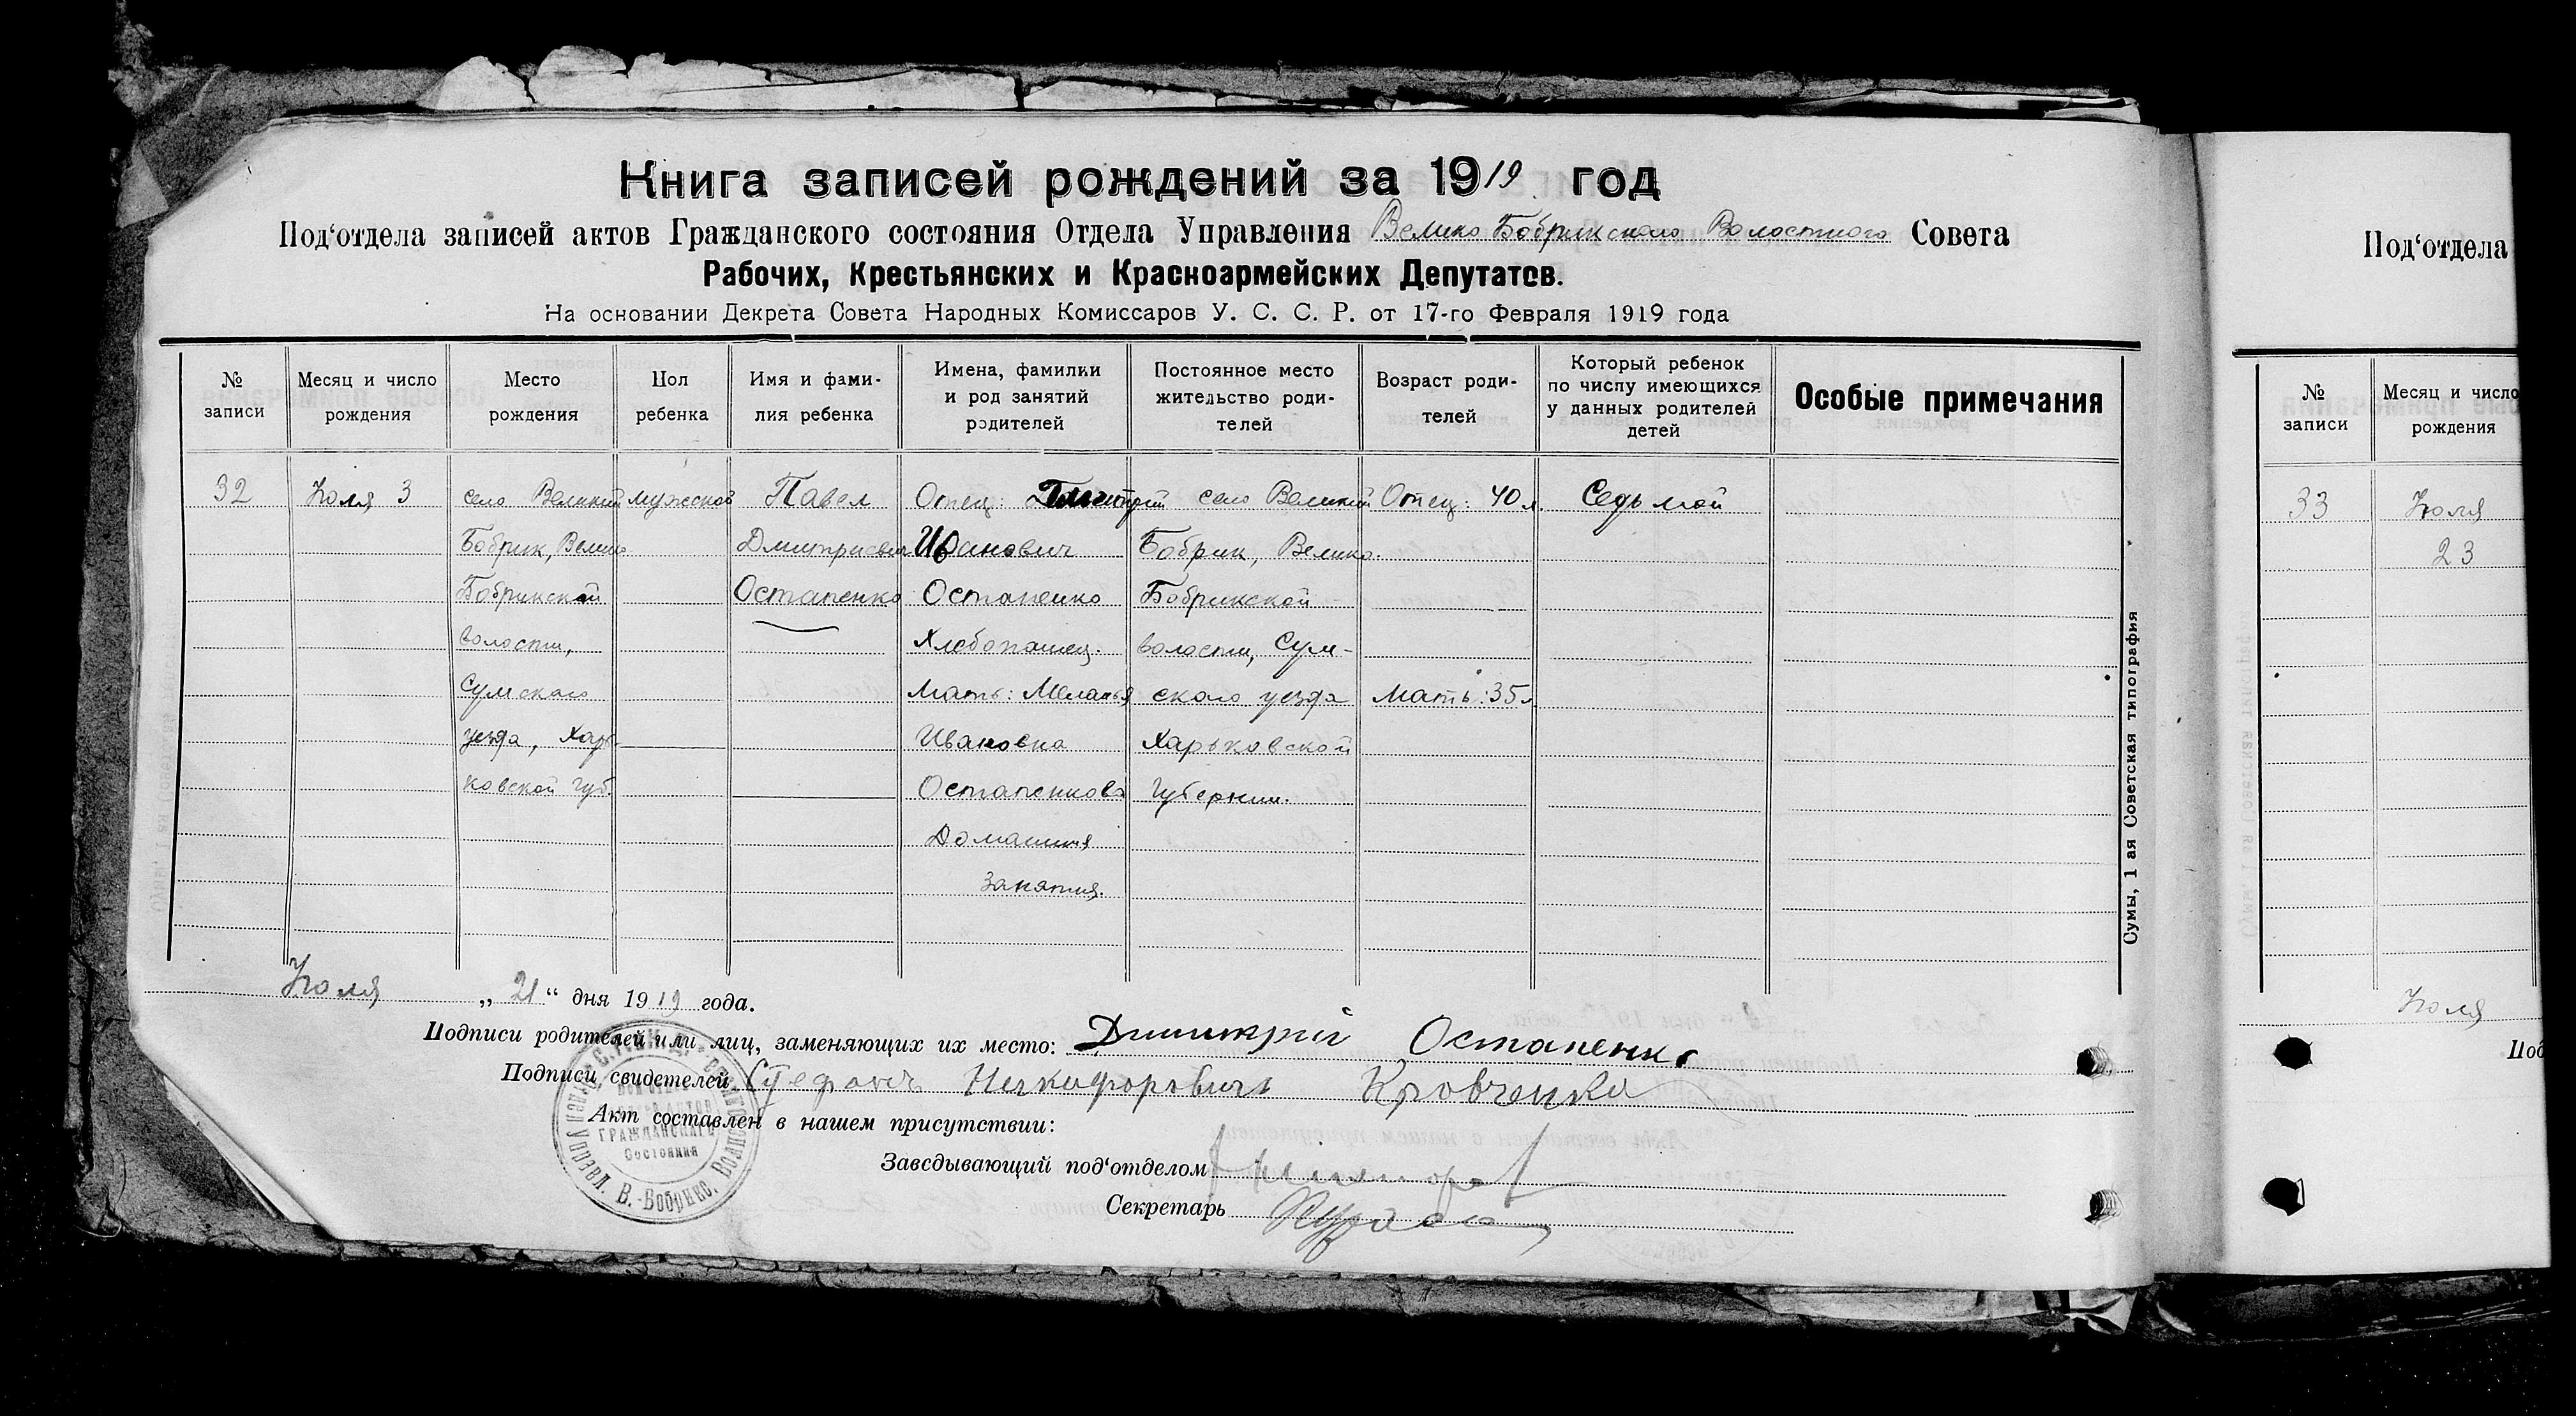 Книга записей рождений за 1919 год
Под‘отдела записей актов Гражданского состояния Отдела Управления Велико Бобрикского Волостного Совета
Рабочих, Крестьянских и Красноармейских Депутатов.
На основании Декрета Совета Народных Комиссаров У. С. С. Р. от 17-го Февраля 1919 года
№ записи
Месяц и число рождения
Место рождения
Пол ребенка
Имя и фами-
лия ребенка
Имена, фамилии
и род занятий
родителей
Постоянное место
жительство роди-
телей
Возраст роди-
телей
Который ребенок
по числу имеющихся
у данных родителей
детей
Особые примечания
32 Июля 3 село Великий мужской Павел Отец: Дмитрий село Великий Отец: 40 л. Седьмой
Бобрик, Велико Дмитриевич Иванович Бобрик, Велико-
Бобрикской Остапенко Остапенко Бобрикской
волости, Хлебопашец. волости, Сум-
Сумского Мать: Меланья ского уезда Мать: 35 л.
уезда, Харь- Ивановна Харьковской
ковской губ. Остапенкова Губернии.
Домашния
занятия.
Июля „21“ дня 1919 года.
Подписи родителей или лиц, заменяющих их место: Димитрий Остапенко
Подписи свидетелей Стефанъ Никифоровичъ Кровченко
Акт составлен в нашем присутствии:
Заведывающий под‘отделом
Секретарь
ГРАЖДАНСКАГО
Состояния
В.-Бобрикс. Волост
Сумы, 1 ая Советская типография
Под‘отдела
№ записи
Месяц и число
рождения
33 Июля
23
Июля
Под